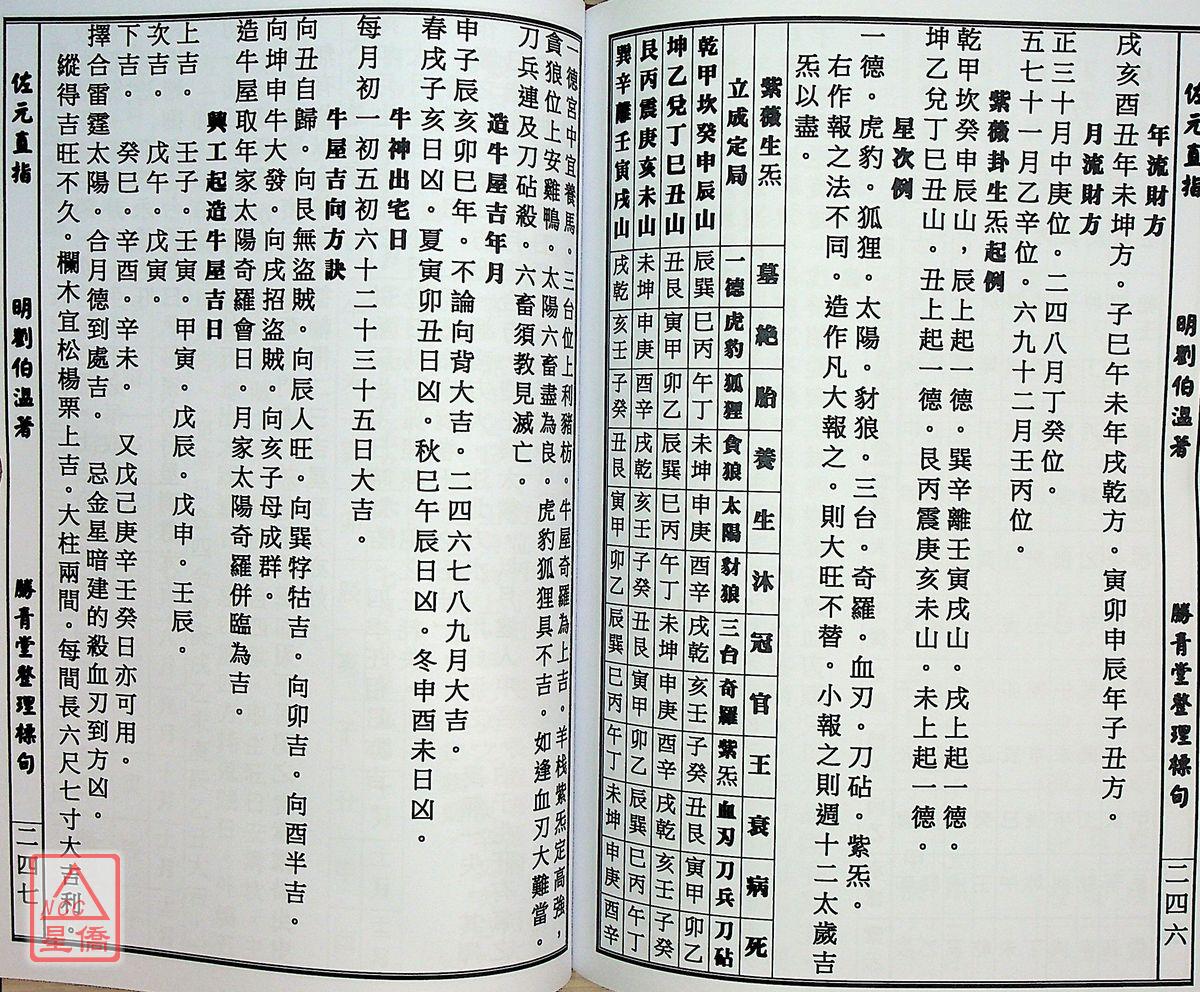 佐元直指 明劉伯溫著 勝青堂整理標句 二四六
年流財方
戌亥酉丑年未坤方．子巳午未年戌乾方．寅卯申辰年子丑方．
月流財方
正三十月中庚位．二四八月丁癸位．
五七十一月乙辛位．六九十二月壬丙位．
紫薇卦生炁起例
乾甲坎癸申辰山，辰上起一德．巽辛離壬寅戌山．戌上起一德．
坤乙兌丁巳丑山．丑上起一德．艮丙震庚亥未山．未上起一德．
星次例
一德．虎豹．狐狸．太陽．豺狼．三台．奇羅．血刃．刀砧．紫炁．
右作報之法不同．造作凡大報之．則大旺不替．小報之則週十二太歲吉
炁以盡．
紫薇生炁 墓 絕 胎 養 生 沐 冠 官 王 衰 病 死
立成定局 一德 虎豹 狐狸 貪狼 太陽 豺狼 三台 奇羅 紫炁 血刃 刀兵 刀砧
乾甲坎癸申辰山 辰巽 巳丙 午丁 未坤 申庚 酉辛 戌乾 亥壬 子癸 丑艮 寅甲 卯乙
坤乙兌丁巳丑山 丑艮 寅甲 卯乙 辰巽 巳丙 午丁 未坤 申庚 酉辛 戌乾 亥壬 子癸
艮丙震庚亥未山 未坤 申庚 酉辛 戌乾 亥壬 子癸 丑艮 寅甲 卯乙 辰巽 巳丙 午丁
巽辛離壬寅戌山 戌乾 亥壬 子癸 丑艮 寅甲 卯乙 辰巽 巳丙 午丁 未坤 申庚 酉辛
一德宮中宜養馬．三台位上利豬枋．牛屋奇羅為上吉．羊栈紫炁定高強，
貪狼位上安雞鴨．太陽六畜盡為良．虎豹狐狸具不吉．如逢血刃大難當．
刀兵連及刀砧殺．六畜須教見滅亡．
造牛屋吉年月
申子辰亥卯巳年．不論向背大吉．二四六七八九月大吉．
春戌子亥日凶．夏寅卯丑日凶．秋巳午辰日凶．冬申酉未日凶．
牛神出宅日
每月初一初五初六十二十三十五日大吉．
牛屋吉向方訣
向丑自歸．向艮無盜賊．向辰人旺．向巽牸牯吉．向卯吉．向酉半吉．
向坤申牛大發．向戌招盜賊．向亥子母成群．
造牛屋取年家太陽奇羅會日．月家太陽奇羅併臨為吉．
興工起造牛屋吉日
上吉．壬子．壬寅．甲寅．戊辰．戊申．壬辰．
次吉．戊午．戊寅．
下吉．癸巳．辛酉．辛未．又戊己庚辛壬癸日亦可用．
擇合雷霆太陽．合月德到處吉．忌金星暗建的殺血刃到方凶．
縱得吉旺不久．欄木宜松楊栗上吉．大柱兩間．每間長六尺七寸大吉利．
佐元直指 明劉伯溫著 勝青堂整理標句 二四七
NCC
星僑